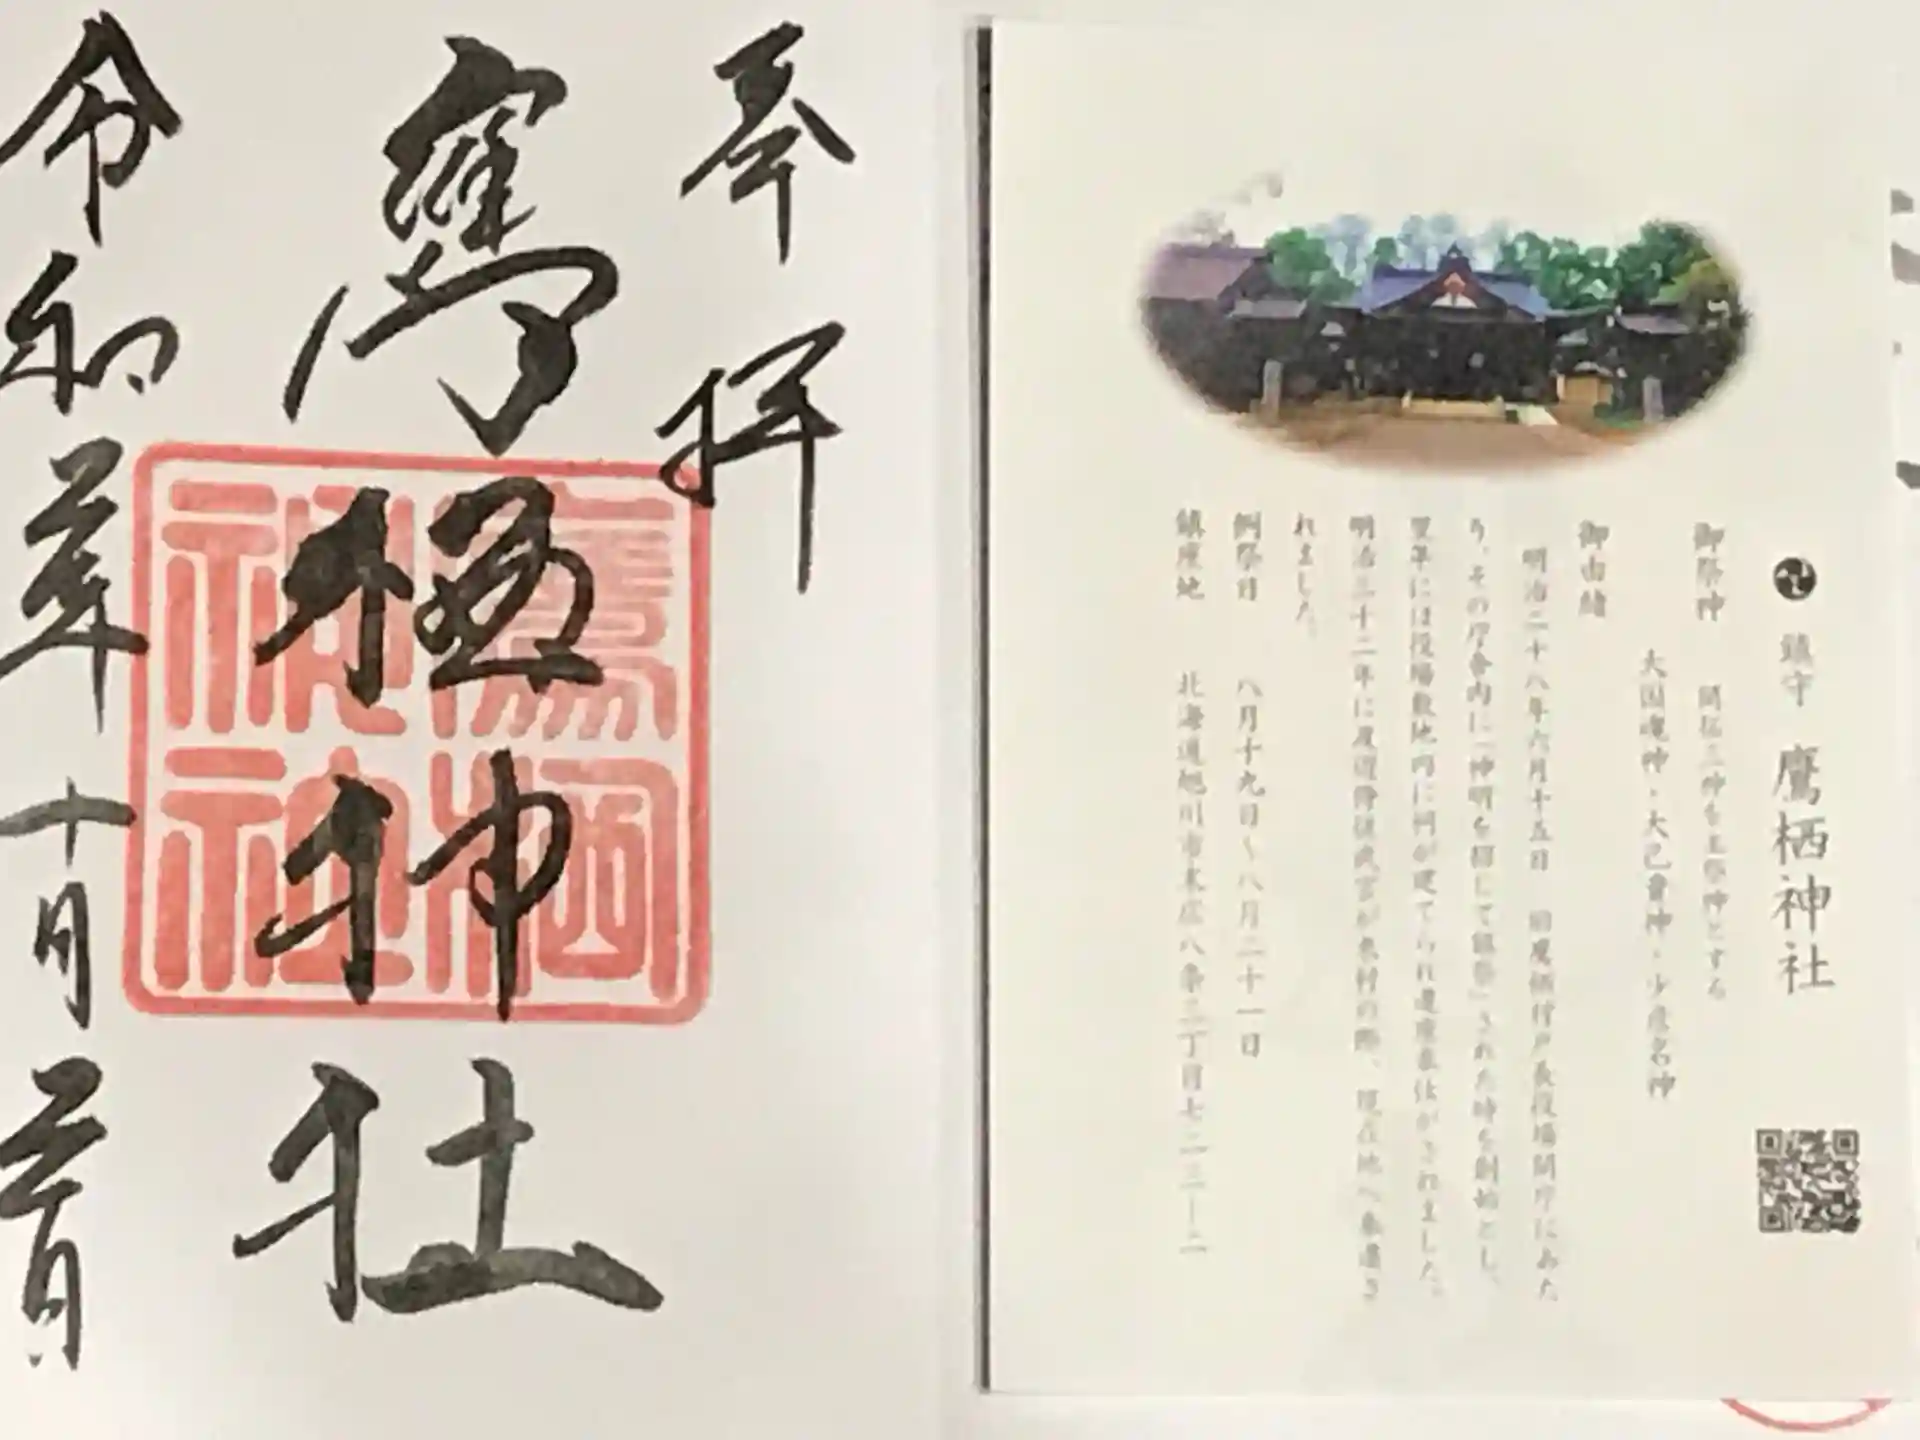 奉拝
鷹栖神社
令和元年十月二日
鷹栖神社
鎮守 鷹栖神社
御祭神 開拓三神を主祭神とする
大国魂神・大己貴神・少彦名神
御由緒
明治二十八年六月十五日 旧鷹栖村戸長役場開庁にあた
り、その庁舎内に「神明を招して鎮祭」された時を創始とし、
翌年には役場敷地内に祠が建てられ遷座奉仕がされました。
明治三十二年に渡辺
宮が来村の際、現在地へ奉遷さ
れました。
例祭日 八月十九日〜八月二十一日
鎮座地 北海道旭川市末広八条三丁目七二三ー二